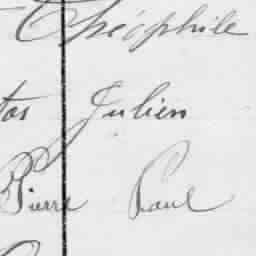 Théophile
tas Julien
Pierre Paul